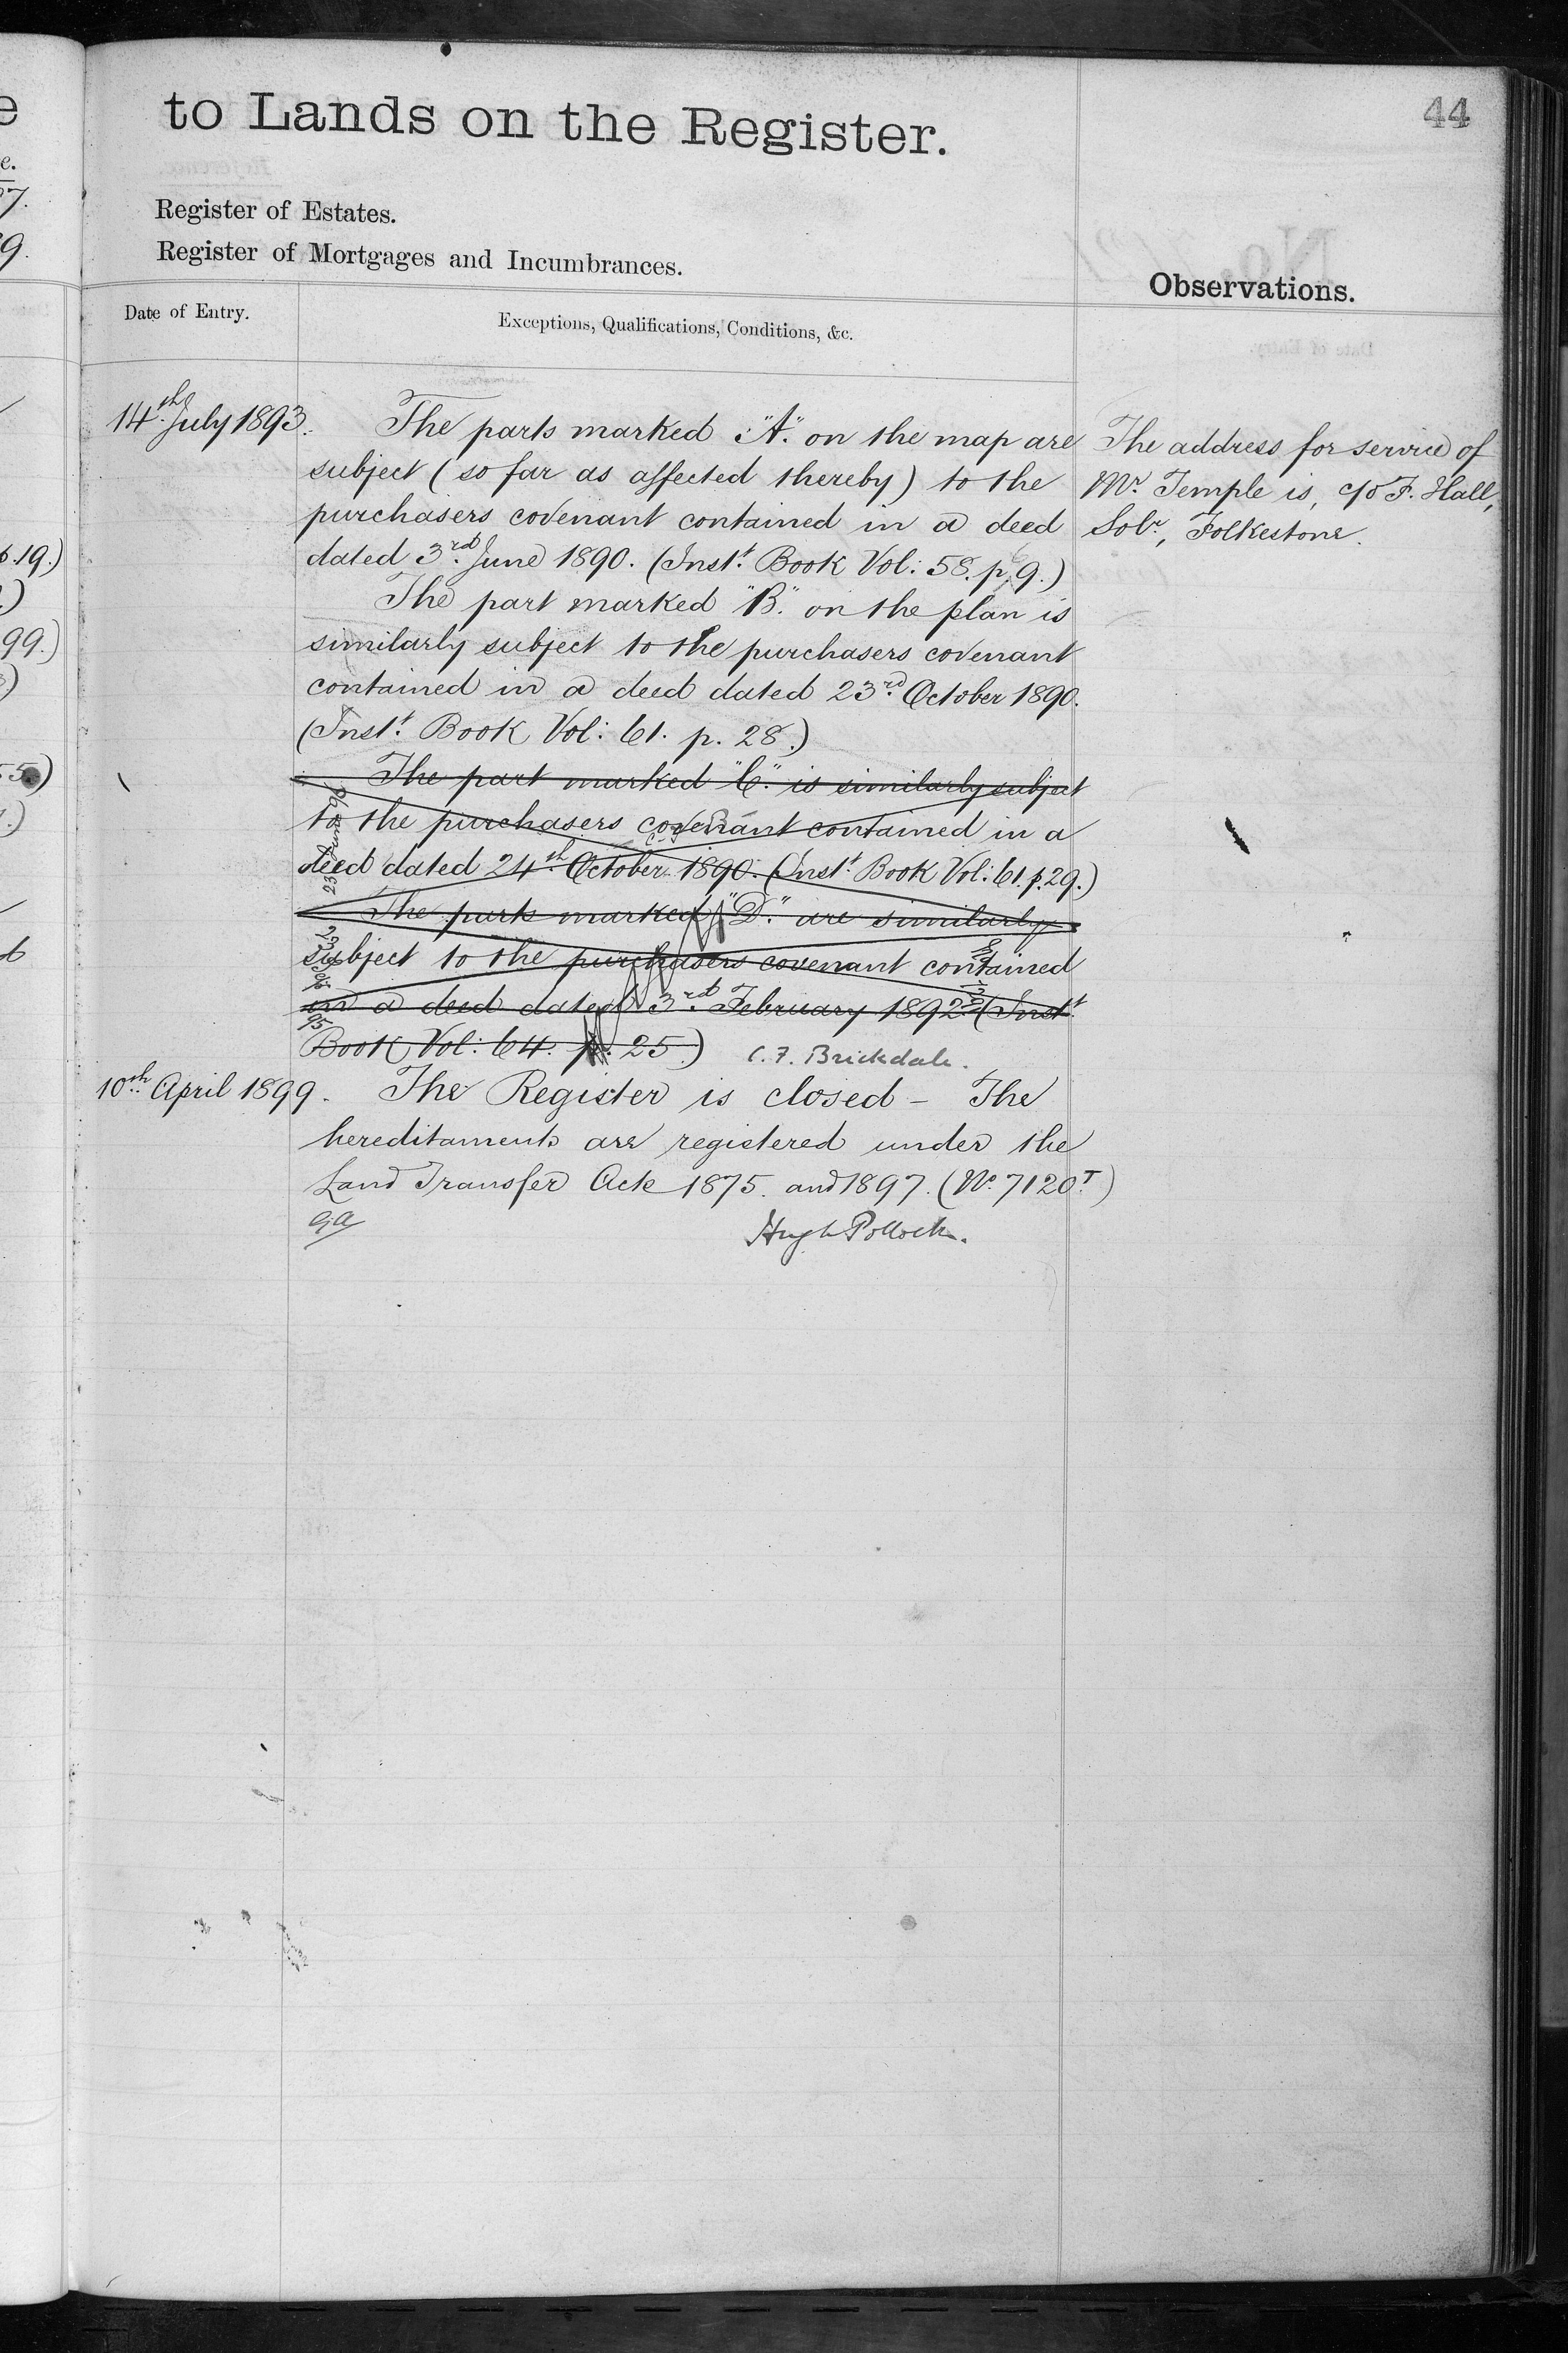 to Lands on the Register.
44
Register of Estates.
Register of Mortgages and Incumbrances.
Date of Entry.
Exceptions, Qualifications, Conditions, &c.
Observations.
14th July 1893.
The parts marked "A" on the map are
subject (so far as affected thereby) to the
purchasers covenant contained in a deed
dated 3rd June 1890. (Instt Book Vol: 58. p. 9.)
The part marked "B" on the plan is
similarly subject to the purchasers covenant
contained in a deed dated 23rd October 1890.
(Instt Book Vol: 61. p. 28.)
The part marked "C" is similarly subject
to the purchasers covenant contained in a
deed dated 24th October 1890. (Instt Book Vol: 61. p. 29.)
The parts marked "D." are similarly
subject to the purchasers covenant contained
in a deed dated 3rd February 1892 (Instt
Book Vol: 64. p. 25.)
C. F. Brickdale.
10th April 1899.
The Register is closed – The
hereditaments are registered under the
Land Transfer Acts 1875. and 1897. (No. 7120.T)
Hugh Pollock.
The address for service of
Mr. Temple is, c/o F. Hall,
Solr, Folkestone.
e
e.
7.
9.
p.19.)
99.)
5)